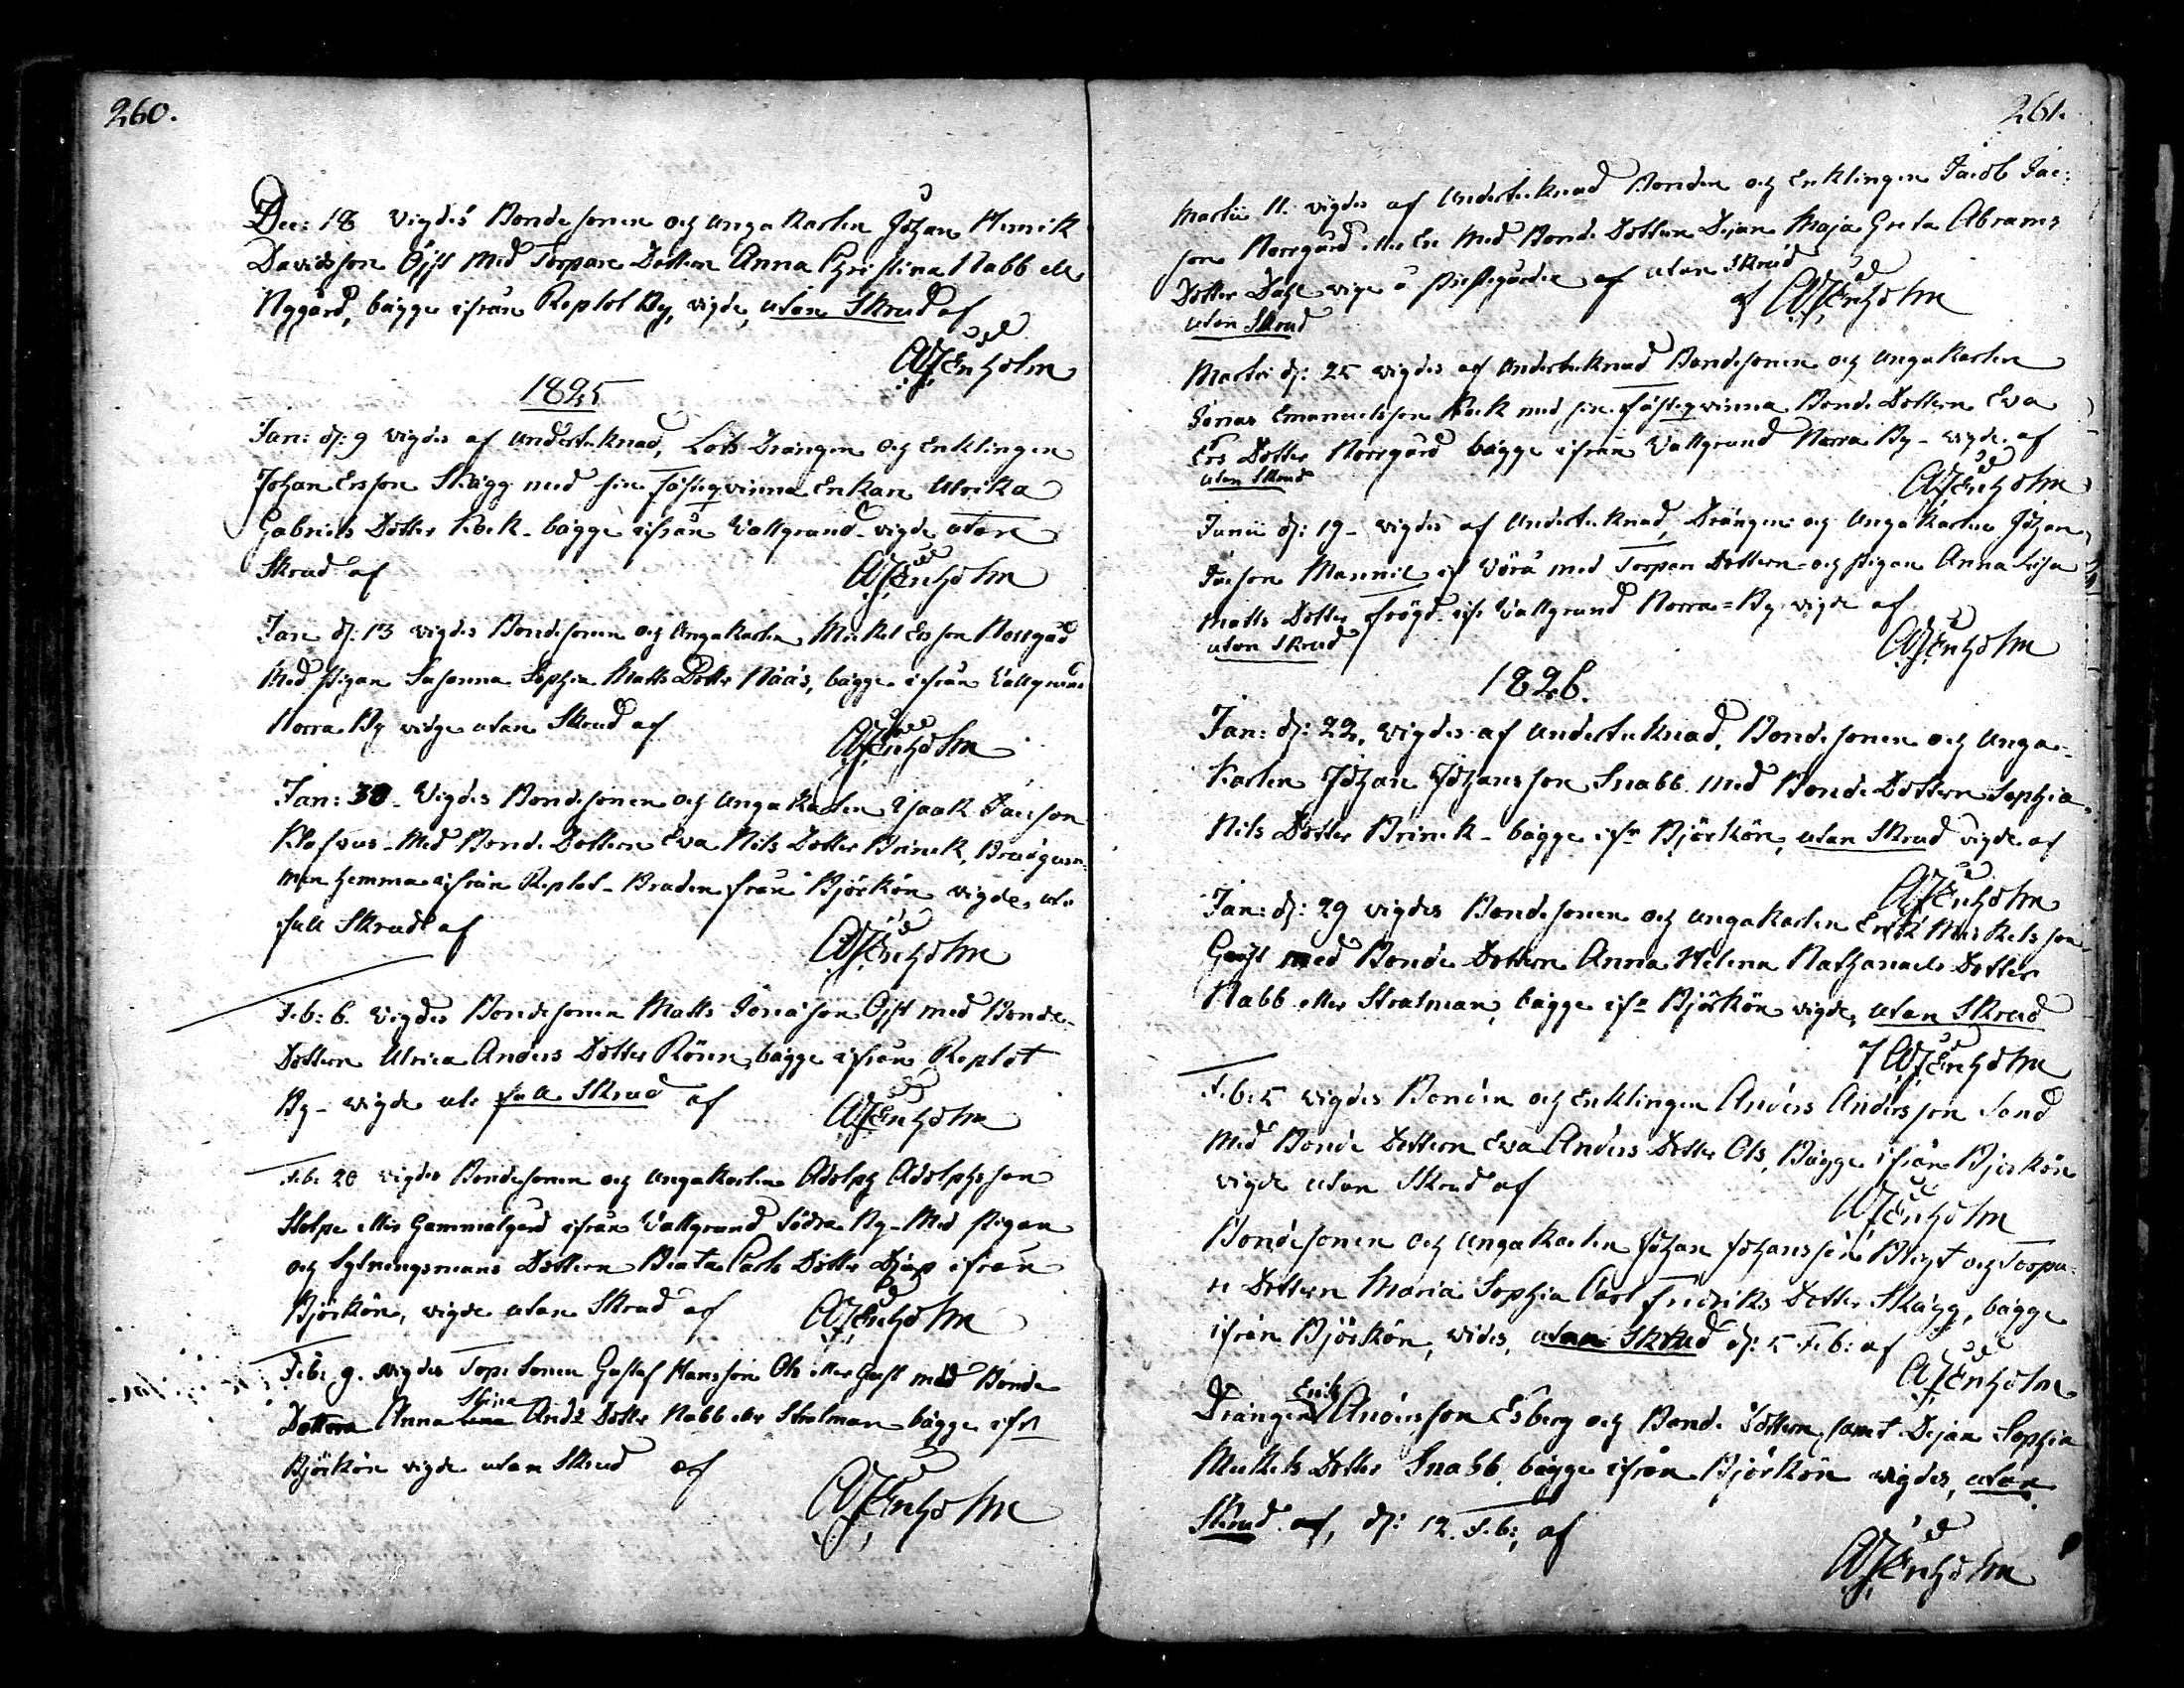 260.
Dec: 18 vigdes Bondesonen och ungakarlen Johan Henrik
Davidsson Öjst med Torpare Dottern Anna Christina Nabb ell.
Nygård, bägge ifrån Replot By, vigde, utan Skrud af
Asenholm
1825
Jan: d: 9 vigdes af undertecknad, Lots Drängen och Enklingen
Johan Ersson Skägg med sin Fästeqvinna Enkan Ulrika
Gabriels Dotter Kock - bägge ifrån Vallgrund - vigde utan
Skrud af Asenholm
Jan d: 13 vigdes Bondesonen och Ungakarlen Mickel Ersson Norrgård
Med Pigan Susanna Sophia Matts Dotter Nääs, bägge ifrån Vallgrund
Norra By vidge utan Skrud af Asenholm
Jan: 30 - Vigdes Bondesonen och Ungakarlen Isaak Jacsson
Klofvus - Med Bonde Dottern Eva Nils Dotter Brinck, Brudgum-
men hemma ifrån Replot - Bruden från Björkön vigde, uti
full Skrud af Asenholm
Feb: 6. Vigdes Bondesonen Matts Jonasson Öjst med Bonde-
Dottern Ulrica Anders Dotter Rönn, bägge ifrån Replot
By - vigde uti full Skrud af Asenholm
Feb: 20 vigdes Bondesonen och ungakarlen Adolph Adolphsson
Stolpe eller Gammalgård ifrån Vallgrund Södra By - Med Pigan
och Sytningsmans Dottern Beata Carls Dotter Djup ifrån
Björkön, vigde utan Skrud af Asenholm
Feb: 9. vigdes Torp. Sonen Gustaf Hansson Ols eller Gast med Bonde
Stina
Dottern Anna Lena Ands Dotter Nabb eller Stolman - bägge ifrn
Björkön vigde utan Skrud af
Asenholm
261.
Martii 11. vigdes af Undertecknad Bonden och Enklingen Jacob Jac:
son Norrgård eller En Med Bonde Dottern Dejan Maja Greta Abrams
Dotter Dahl vige å Prestegården af utan Skrud
utan Skrud af Asenholm
Martii d: 25 vigdes af Undertecknad Bondesonen och ungakarlen
Jonas Emanuelsson Kock med sin Fästeqvinna Bonde Dottern Eva
Ers Dotter Norrgård bägge ifrån Vallgrund Norra By - vigde af
utan Skrud Asenholm
Junii d: 19 - vigdes af Undertecknad, Drängen och Ungakarlen Johan
Jacson Mannil if Vörå med Torpare Dottern och Pigan Anna Lisa
Matts Dotter Frögd ifr Vallgrund Norra=By vigde af
utan Skrud Asenholm
1826.
Jan: d: 22, vigdes af undertecknad, Bondesonen och Unga-
karlen Johan Johansson Snabb med Bonde Dottern Sophia
Nils Dotter Brinck - bägge ifrn Björkön, utan Skrud vigde af
Asenholm
Jan: d: 29 vigdes Bondesonen och ungakarlen Erik Mickelsson
Gast med Bonde Dottern Anna Helena Nathanaels Dotter
Nabb eller Stratman, bägge ifrn Björkön vigde, utan Skrud
af Asenholm
Feb: 5 vigdes Bonden och Enklingen Anders Andersson Sand
med Bonde Dottern Eva Anders Dotter Ols, Bägge ifrån Björkön
vigde utan Skrud af Asenholm
Bondesonen och Ungakarlen Johan Johansson Bligt och Torpa-
re Dottern Maria Sophia Carl Fredriks Dotter Skägg, bägge
ifrån Björkön, vides, utan Skrud d: 5 Feb: af
Asenholm
Erik
Drängen Andersson Esberg och Bonde Dottern, samt Dejan Sophia
Mickels Dotter Snabb, bägge ifrån Björkön vigdes, utan
Skrud af, d: 12. Feb:, af
Asenholm